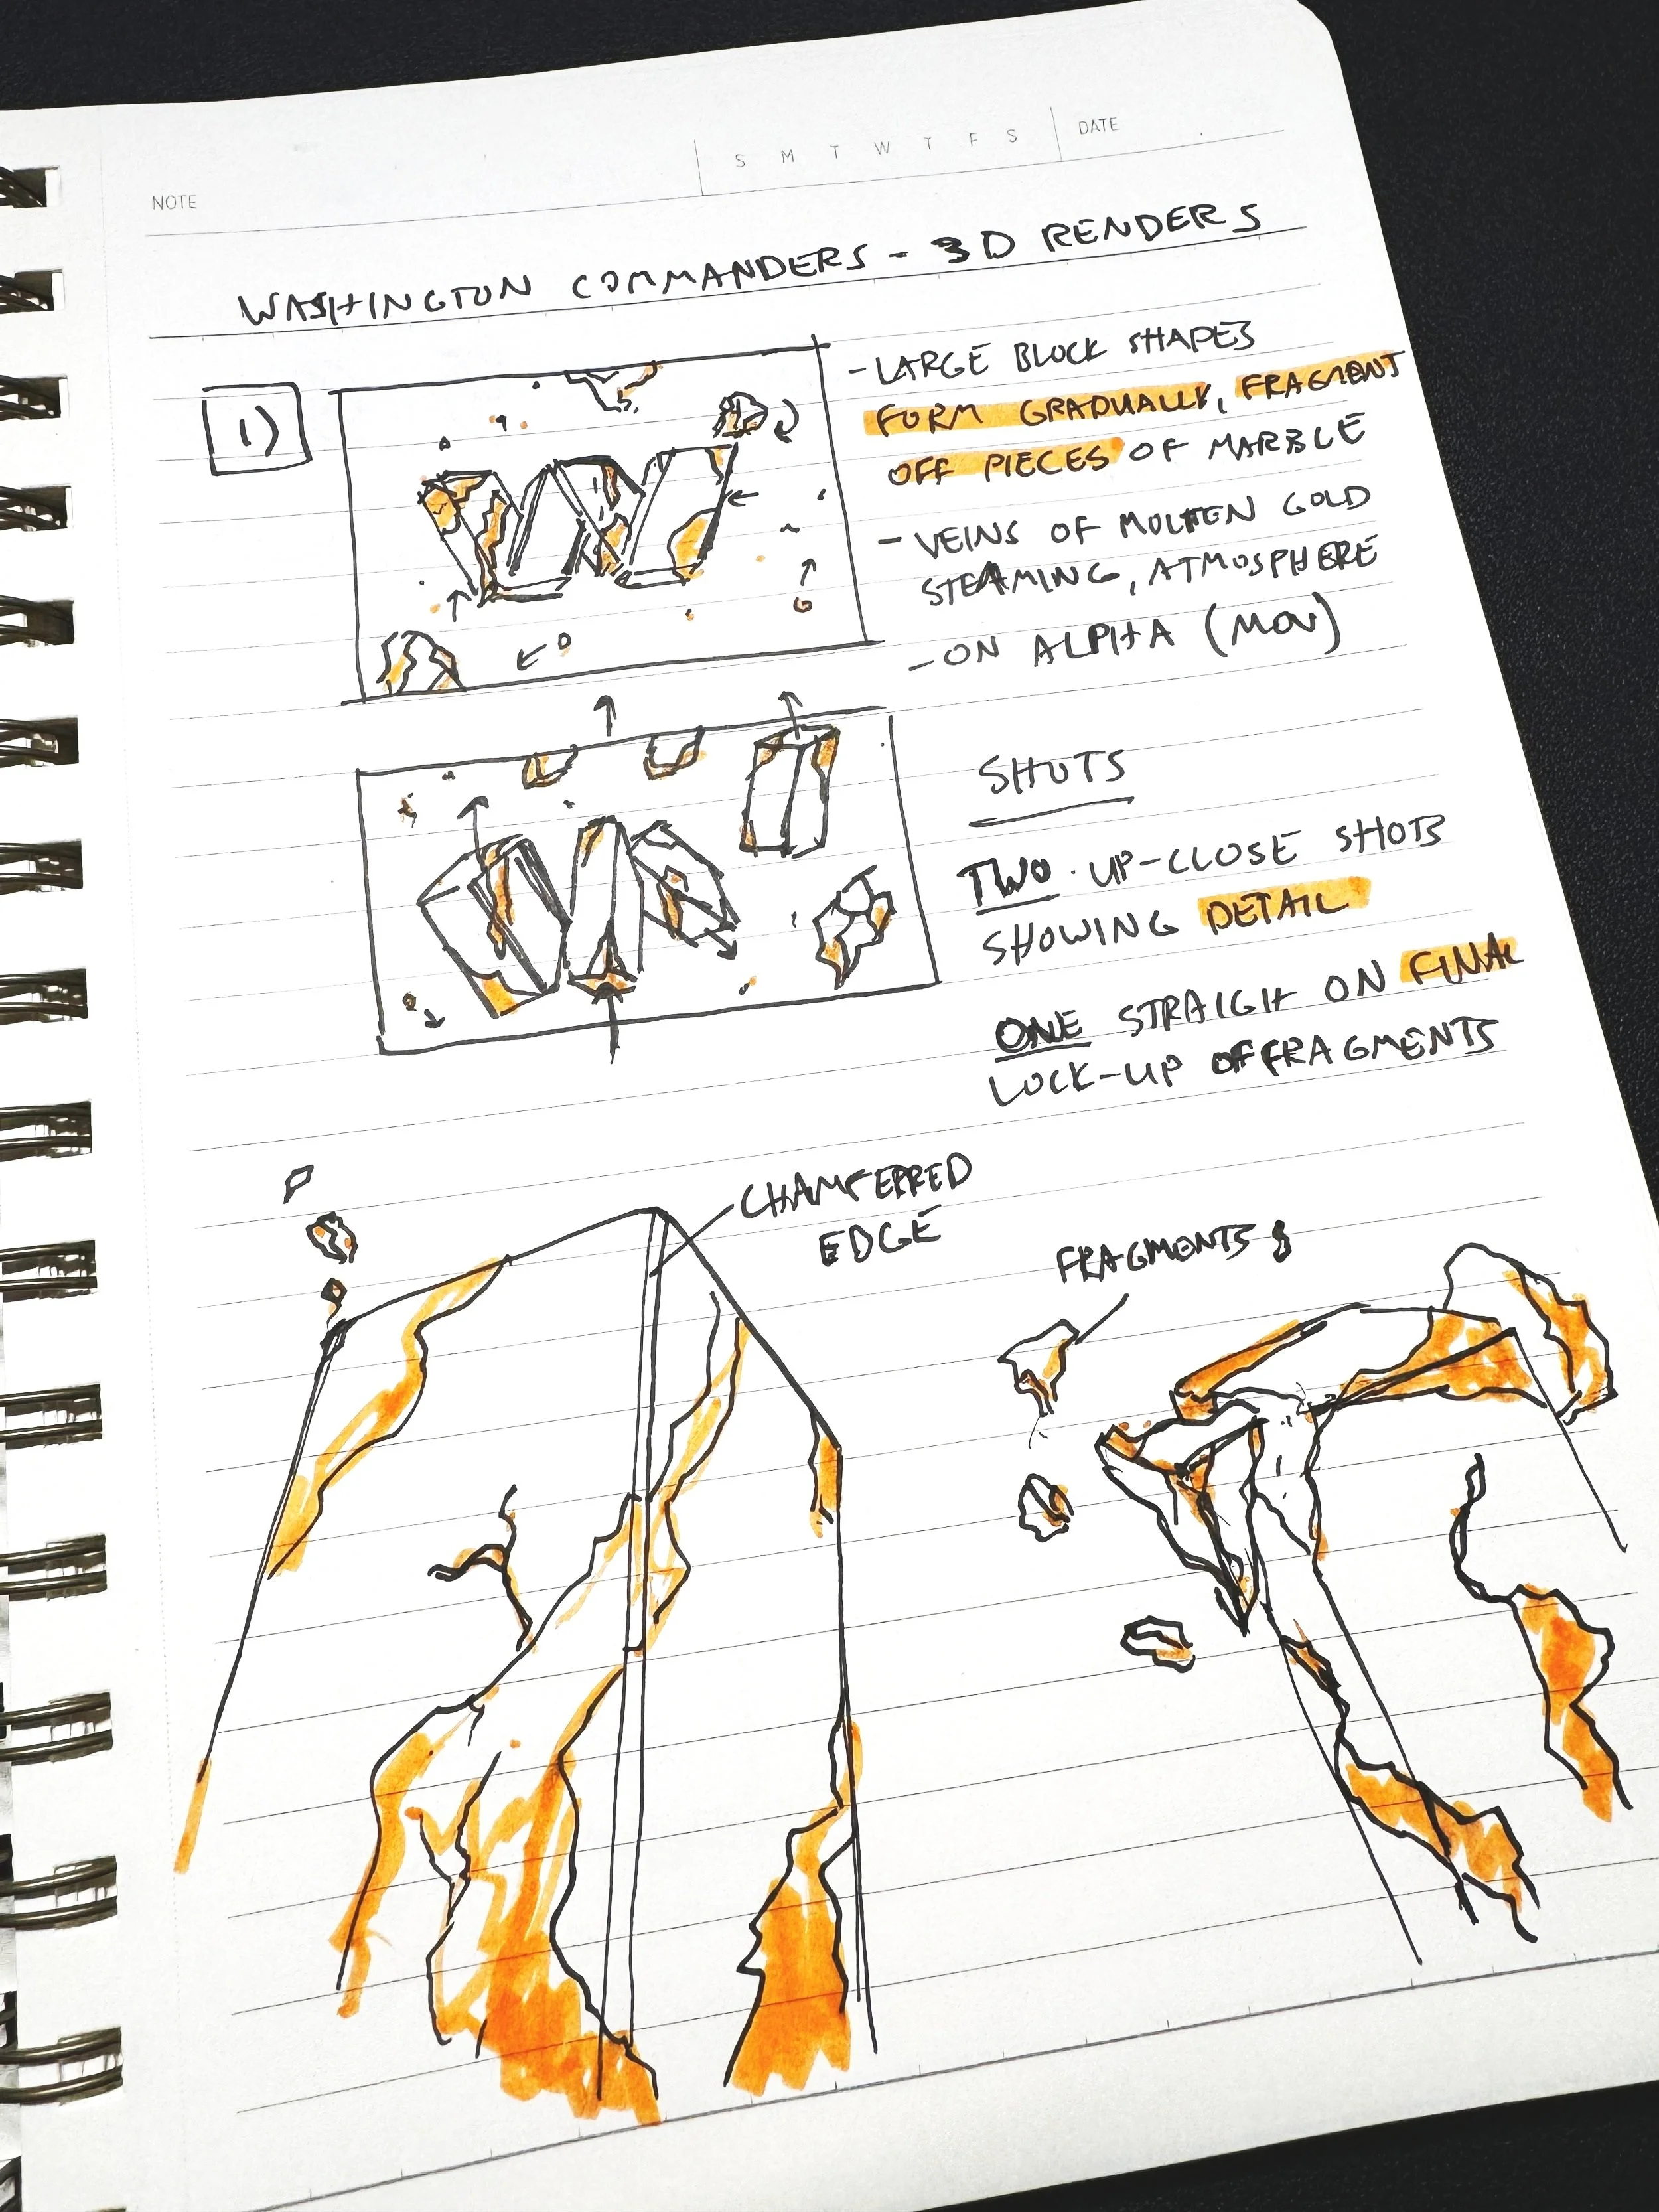 NOTE
S M T W T F S
DATE
WASHINGTON COMMANDERS - 3D RENDERS
1)
- LARGE BLOCK SHAPES
FORM GRADUALLY, FRAGMENT
OFF PIECES OF MARBLE
- VEINS OF MOLTEN GOLD
STEAMING, ATMOSPHERE
- ON ALPHA (MOV)
SHOTS
TWO · UP-CLOSE SHOTS
SHOWING DETAIL
ONE STRAIGH ON FINAL
LOCK-UP OF FRAGMENTS
CHAMFERRED
EDGE
FRAGMENTS